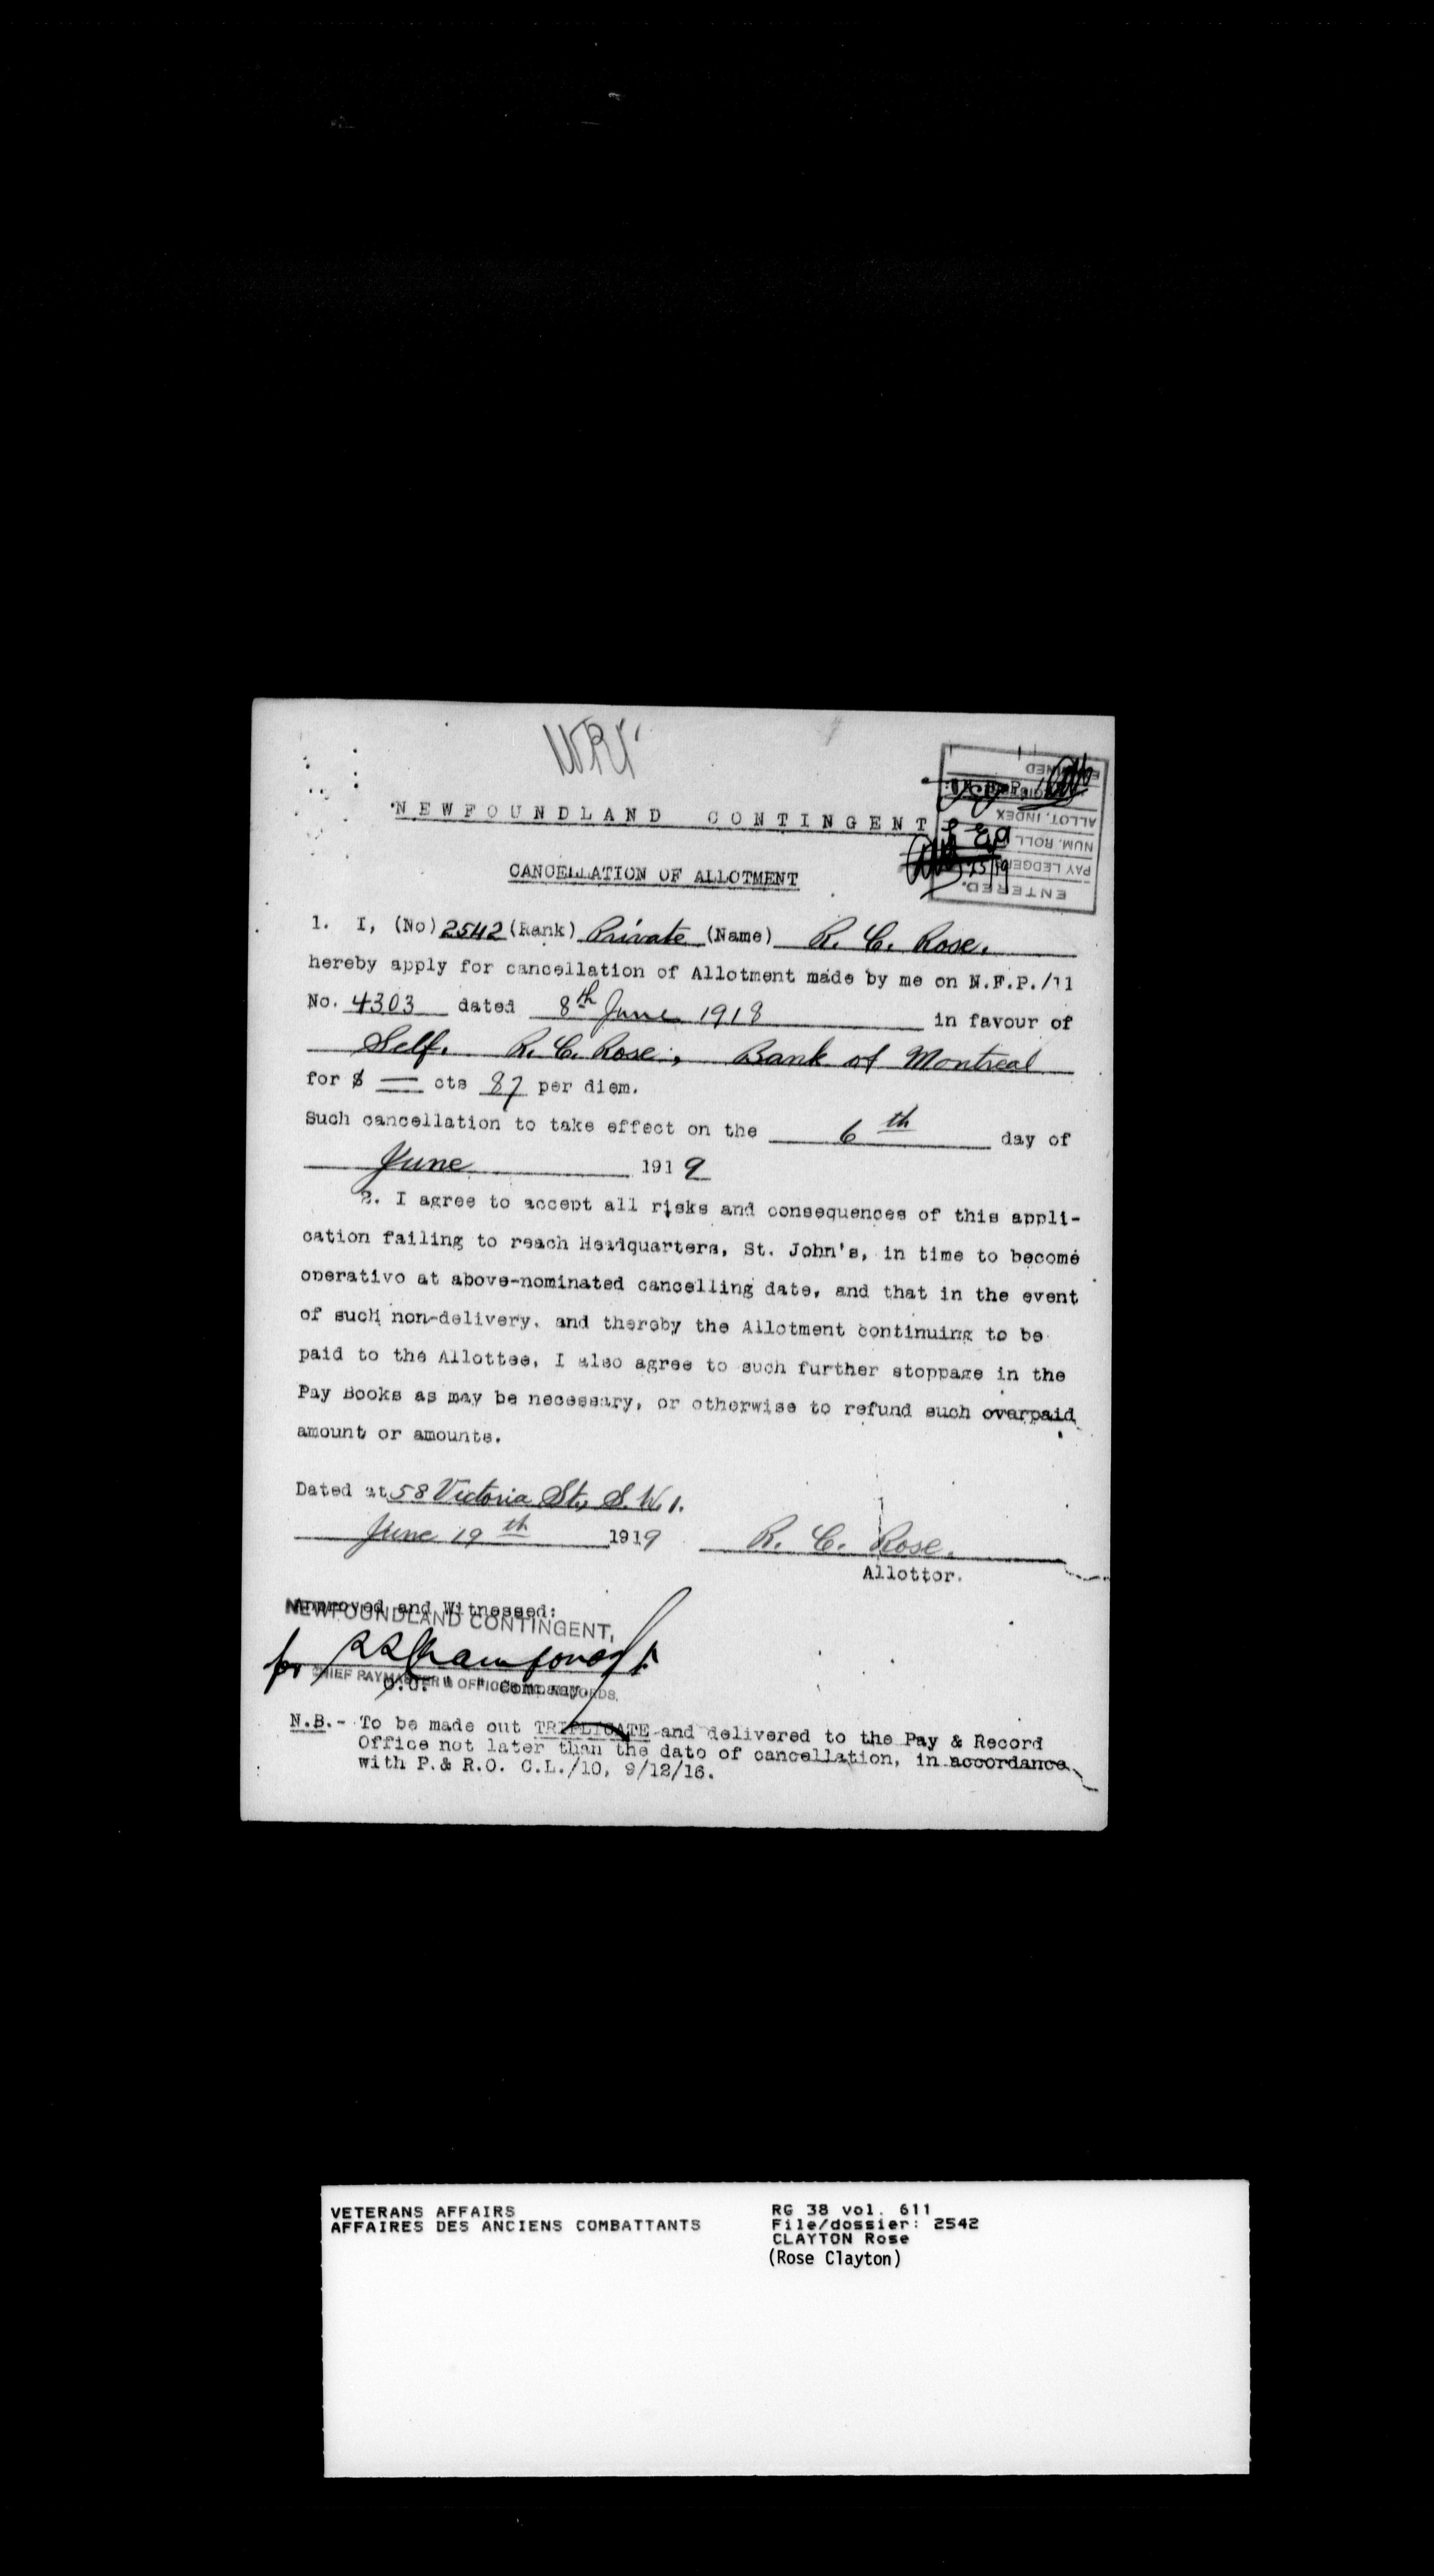 NEWFOUNDLAND CONTINGENT
ENTERED.
PAY LEDGER
NUM. ROLL
ALLOT. INDEX
CANCELLATION OF ALLOTMENT
1. I, (No) 2542 (Rank) Private (Name) R. C. Rose.
hereby apply for cancellation of Allotment made by me on N.F.P./11
No. 4303 dated 8th June 1918 in favour of
Self. R. C. Rose, Bank of Montreal
for $ — cts 87 per diem.
Such cancellation to take effect on the 6th day of
June 1919
2. I agree to accept all risks and consequences of this appli-
cation failing to reach Headquarters, St. John's, in time to become
operative at above-nominated cancelling date, and that in the event
of such non-delivery, and thereby the Allotment continuing to be
paid to the Allottee, I also agree to such further stoppage in the
Pay Books as may be necessary, or otherwise to refund such overpaid
amount or amounts.
Dated at 58 Victoria St., S.W.1.
June 19th 1919 R. C. Rose.
Allottor.
Approved and Witnessed:
NEWFOUNDLAND CONTINGENT,
for
CHIEF PAYMASTER & OFFICER I/C RECORDS.
O.C. " " Company.
N.B.- To be made out TRIPLICATE and delivered to the Pay & Record
Office not later than the date of cancellation, in accordance
with P.& R.O. C.L./10, 9/12/16.
VETERANS AFFAIRS
AFFAIRES DES ANCIENS COMBATTANTS
RG 38 vol. 611
File/dossier: 2542
CLAYTON Rose
(Rose Clayton)